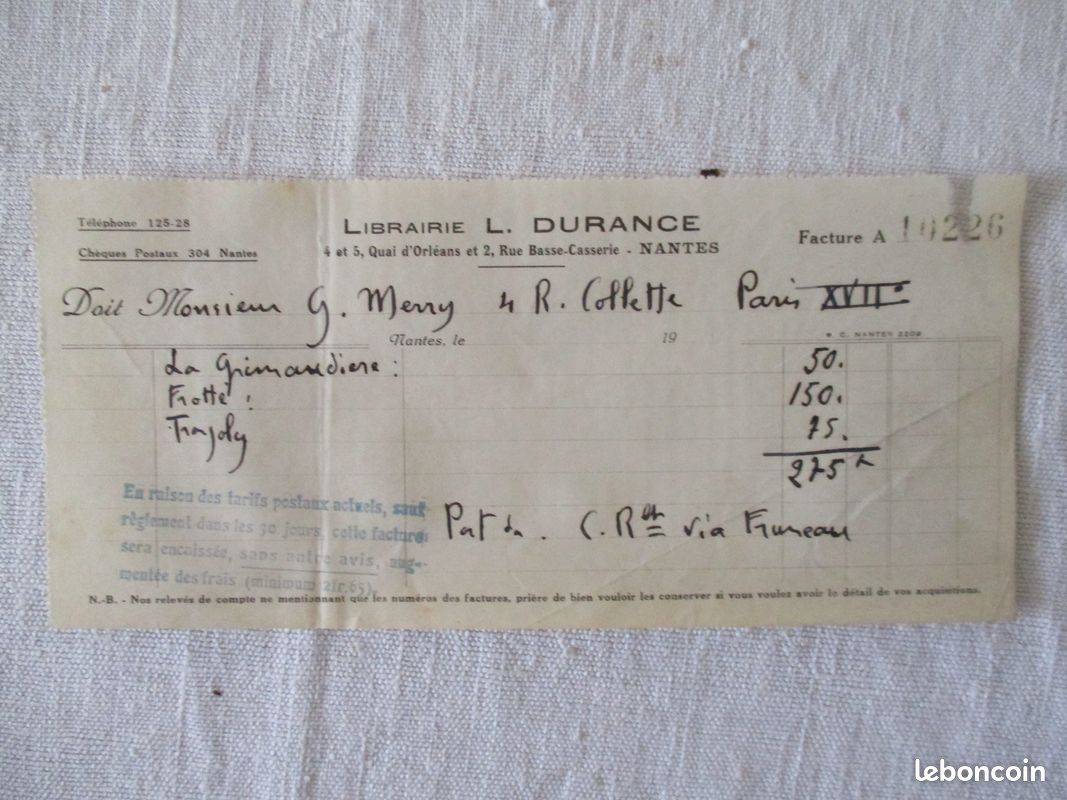 Téléphone 125-28
Chèques Postaux 304 Nantes
LIBRAIRIE L. DURANCE
4 et 5, Quai d'Orléans et 2, Rue Basse-Casserie - NANTES
Facture A 10226
Doit Monsieur G. Merry 4 R. Collette Paris XVII°
Nantes, le 19
C. NANTES 2209
La Grimaudiere : 50.
Frotté : 150.
75.
275
En raison des tarifs postaux actuels, sauf
règlement dans les 30 jours, cette facture
sera encaissée, sans autre avis, aug-
mentée des frais (minimum 2fr.65).
Port du . C. R via
N.-B. - Nos relevés de compte ne mentionnant que les numéros des factures, prière de bien vouloir les conserver si vous voulez avoir le détail de vos acquisitions.
leboncoin